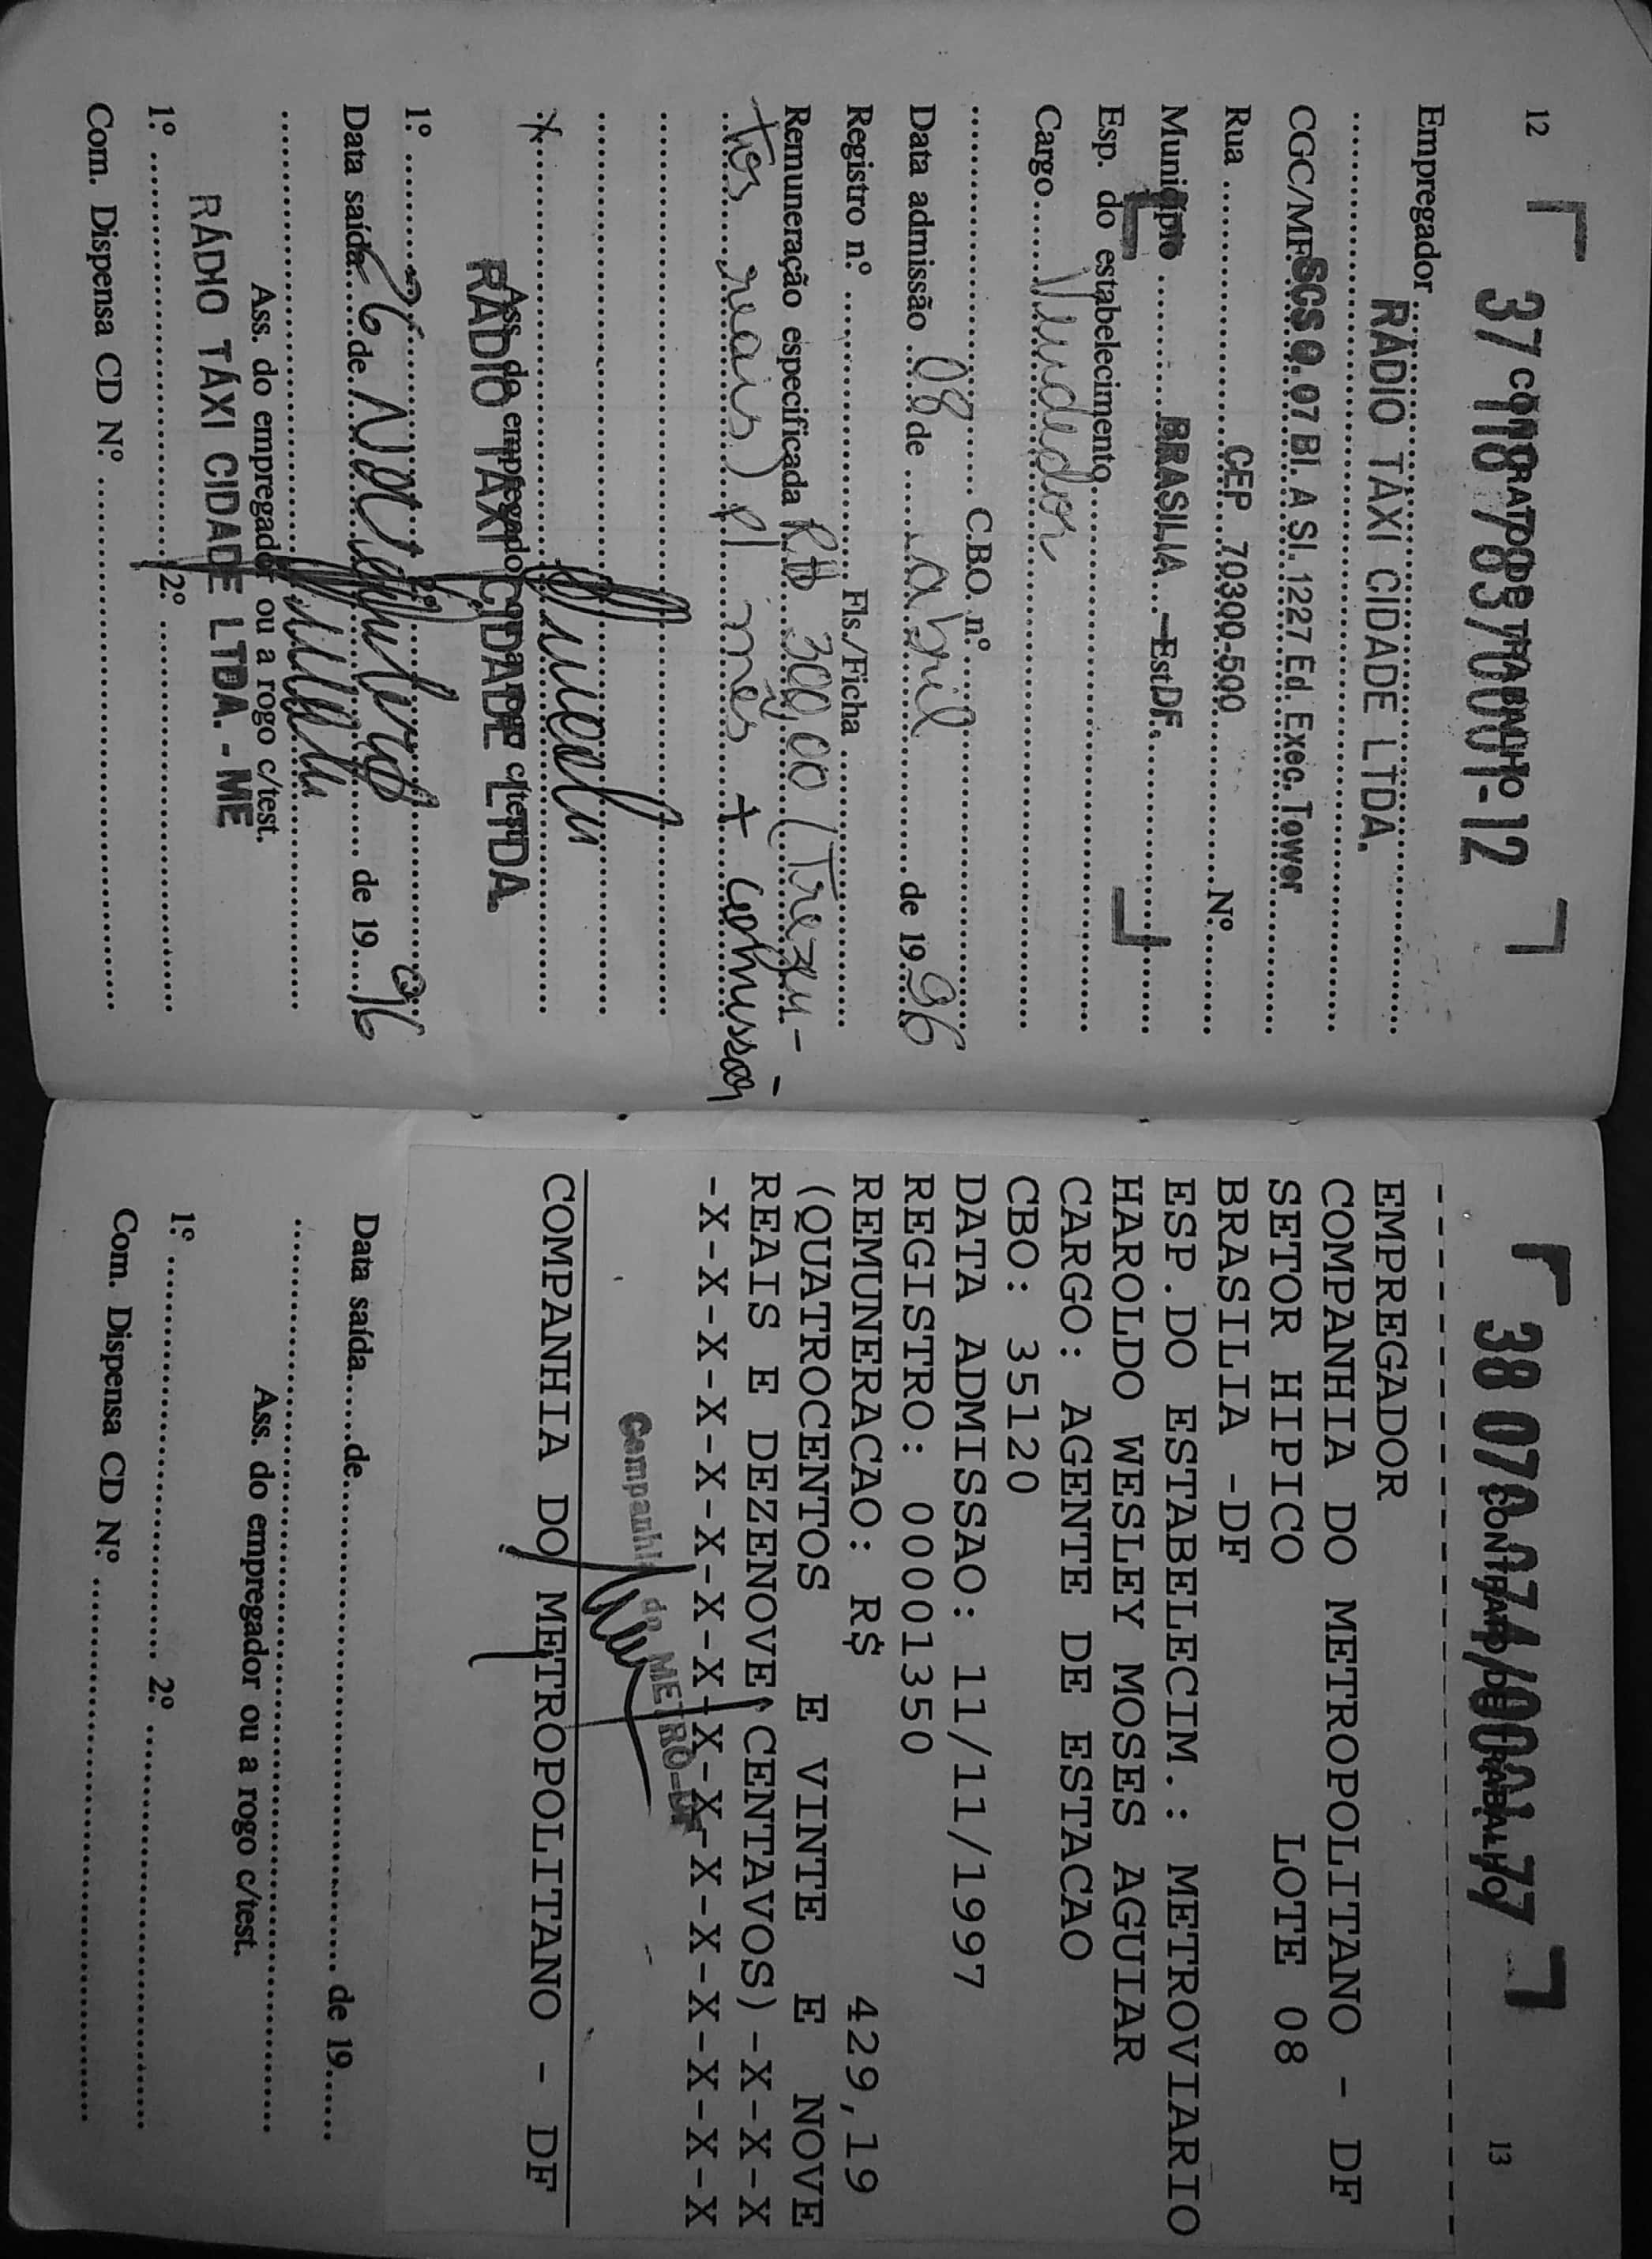 12
37 118 783/0001-12
CONTRATO DE TRABALHO
Empregador
RÁDIO TÁXI CIDADE LTDA.
CGC/MF SCS Q. 07 Bl. A Sl. 1227 Ed. Exec. Tower
Rua CEP 70300-500 N.º
Município BRASILIA - Est DF.
Esp. do estabelecimento
Cargo Vendedor
C.B.O. n.º
Data admissão 08 de abril de 1996
Registro n.º Fls./Ficha
Remuneração especificada R$ 300,00 (Trezen-
tos reais) p/ mês + comissão
Ass. do empregador ou a rogo c/test.
RÁDIO TÁXI CIDADE LTDA.
1.º 2.º
Data saída 26 de Novembro de 1996
Ass. do empregador ou a rogo c/test.
RÁDIO TÁXI CIDADE LTDA. - ME
1.º 2.º
Com. Dispensa CD N.º
13
38 070 074/0001-77
CONTRATO DE TRABALHO
EMPREGADOR
COMPANHIA DO METROPOLITANO - DF
SETOR HIPICO LOTE 08
BRASILIA -DF
ESP.DO ESTABELECIM.: METROVIARIO
HAROLDO WESLEY MOSES AGUIAR
CARGO: AGENTE DE ESTACAO
CBO: 35120
DATA ADMISSAO: 11/11/1997
REGISTRO: 00001350
REMUNERACAO: R$ 429,19
(QUATROCENTOS E VINTE E NOVE
REAIS E DEZENOVE CENTAVOS)-X-X-X
-X-X-X-X-X-X-X-X-X-X-X-X-X-X-X-X
Companhia do METRO-DF
COMPANHIA DO METROPOLITANO - DF
Data saída de de 19
Ass. do empregador ou a rogo c/test.
1.º 2.º
Com. Dispensa CD N.º